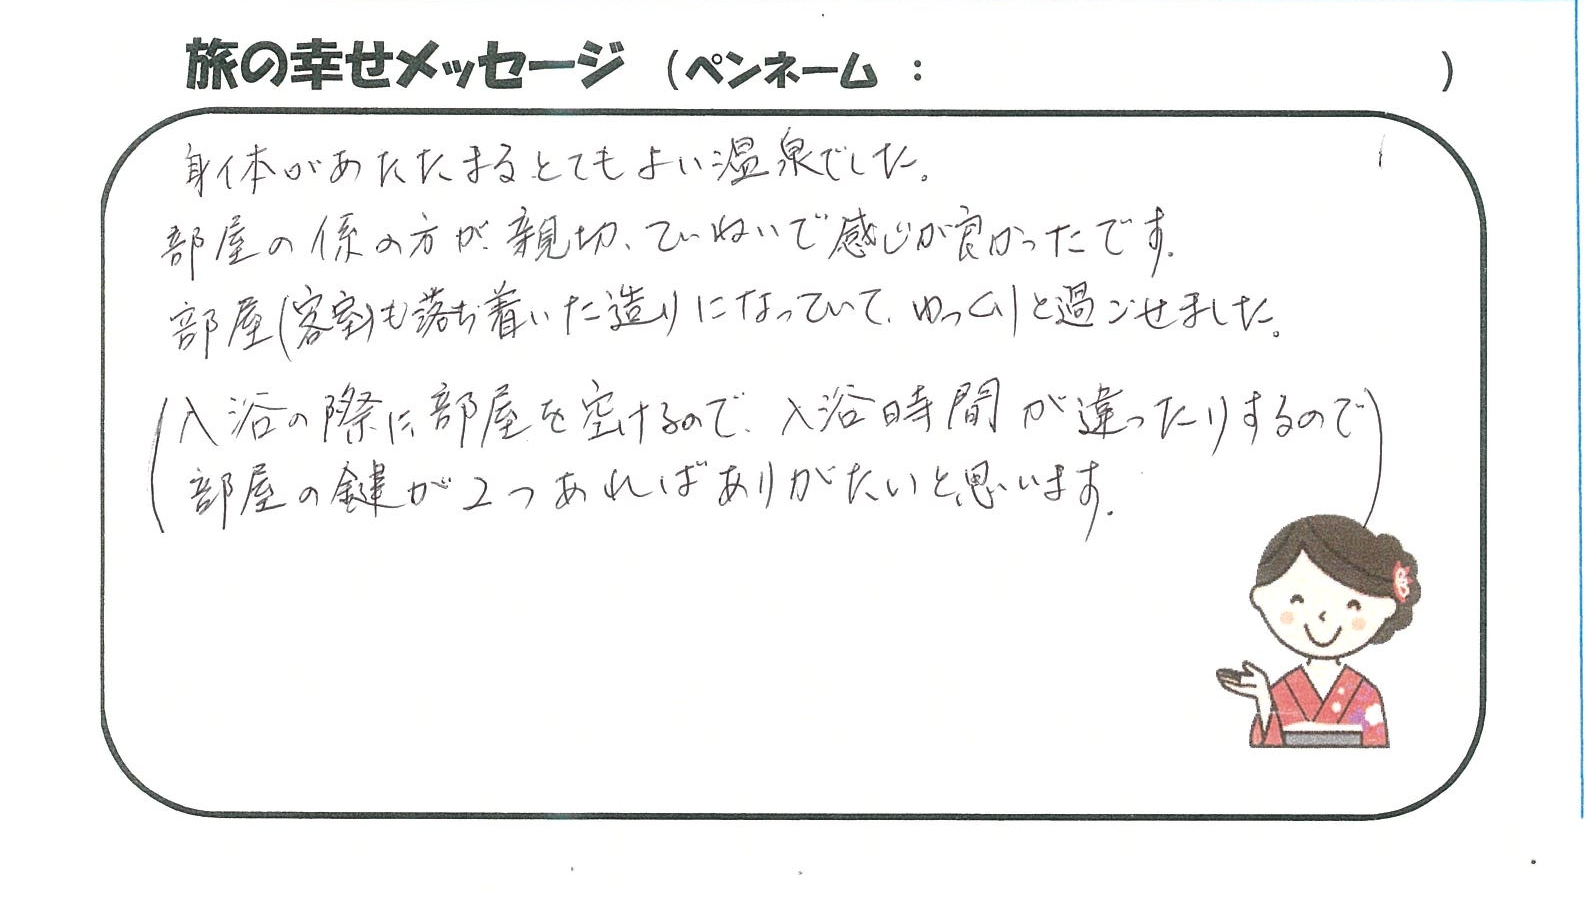 旅の幸せメッセージ (ペンネーム : )
身体があたたまるとてもよい温泉でした。
部屋の係の方が、親切、ていねいで感じが良かったです。
部屋(客室)も落ち着いた造りになっていて、ゆっくりと過ごせました。
(入浴の際に部屋を空けるので、入浴時間が違ったりするので
部屋の鍵が2つあればありがたいと思います。)